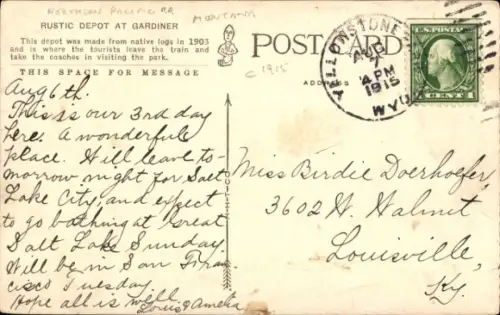 NORTHERN PACIFIC RR MONTANA
RUSTIC DEPOT AT GARDINER
This depot was made from native logs in 1903
and is where the tourists leave the train and
take the coaches in visiting the park.
THIS SPACE FOR MESSAGE
POST CARD
C 1915
ADDRESS
YELLOWSTONE
AUG
PM
1915
WYO.
U.S. POSTAGE
1 CENT 1
Aug 6th.
This is our 3rd day
here. A wonderful
place. Will leave to-
morrow night for Salt
Lake City, and expect
to go bathing at Great
Salt Lake Sunday.
Will be in San Fran-
cisco Tuesday.
Hope all is well
Louis & Amelia
Miss Birdie Doerhoefer,
3602 W. Walnut
Louisville,
Ky.